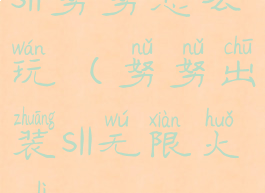 sll努努怎么
wán nǔ nǔ chū
玩（努努出
zhuāng wú xiàn huǒ
装sll无限火